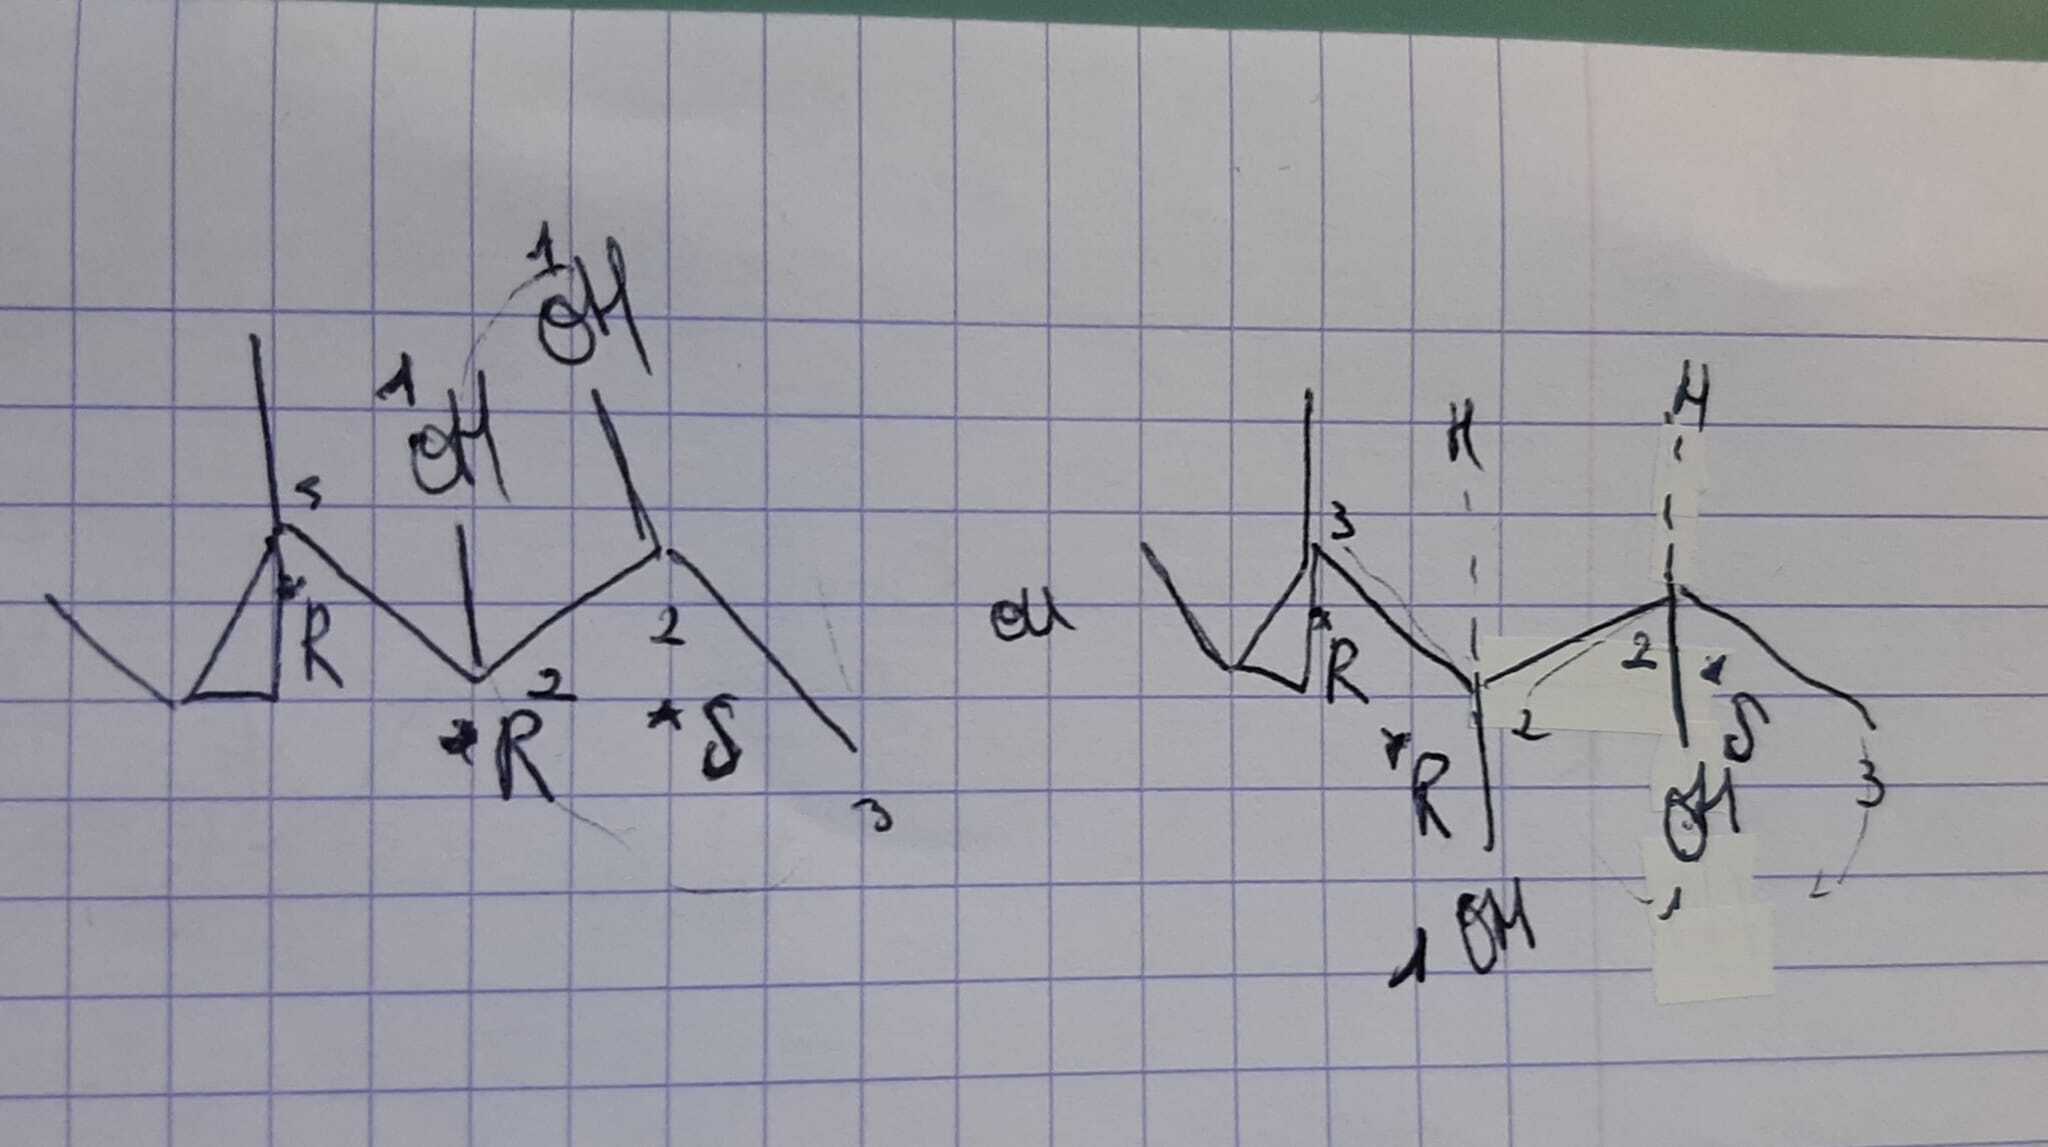 1
OH
1
OH
3
R
2
2
* R
* S
3
ou
H
H
3
* R
2
2
* R
* S
OH
3
1
1 OH